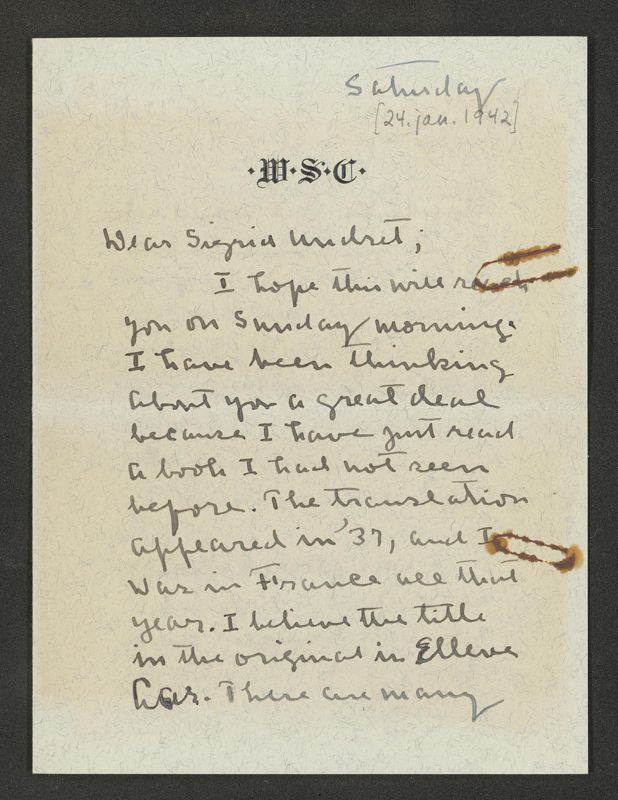 Saturday
[24. jan. 1942]
·W·S·C·
Dear Sigrid Undset;
I hope this will reach
you on Sunday morning.
I have been thinking
about you a great deal
because I have just read
a book I had not seen
before. The translation
appeared in '37, and I
was in France all that
year. I believe the title
in the original is Elleve
Aar. There are many